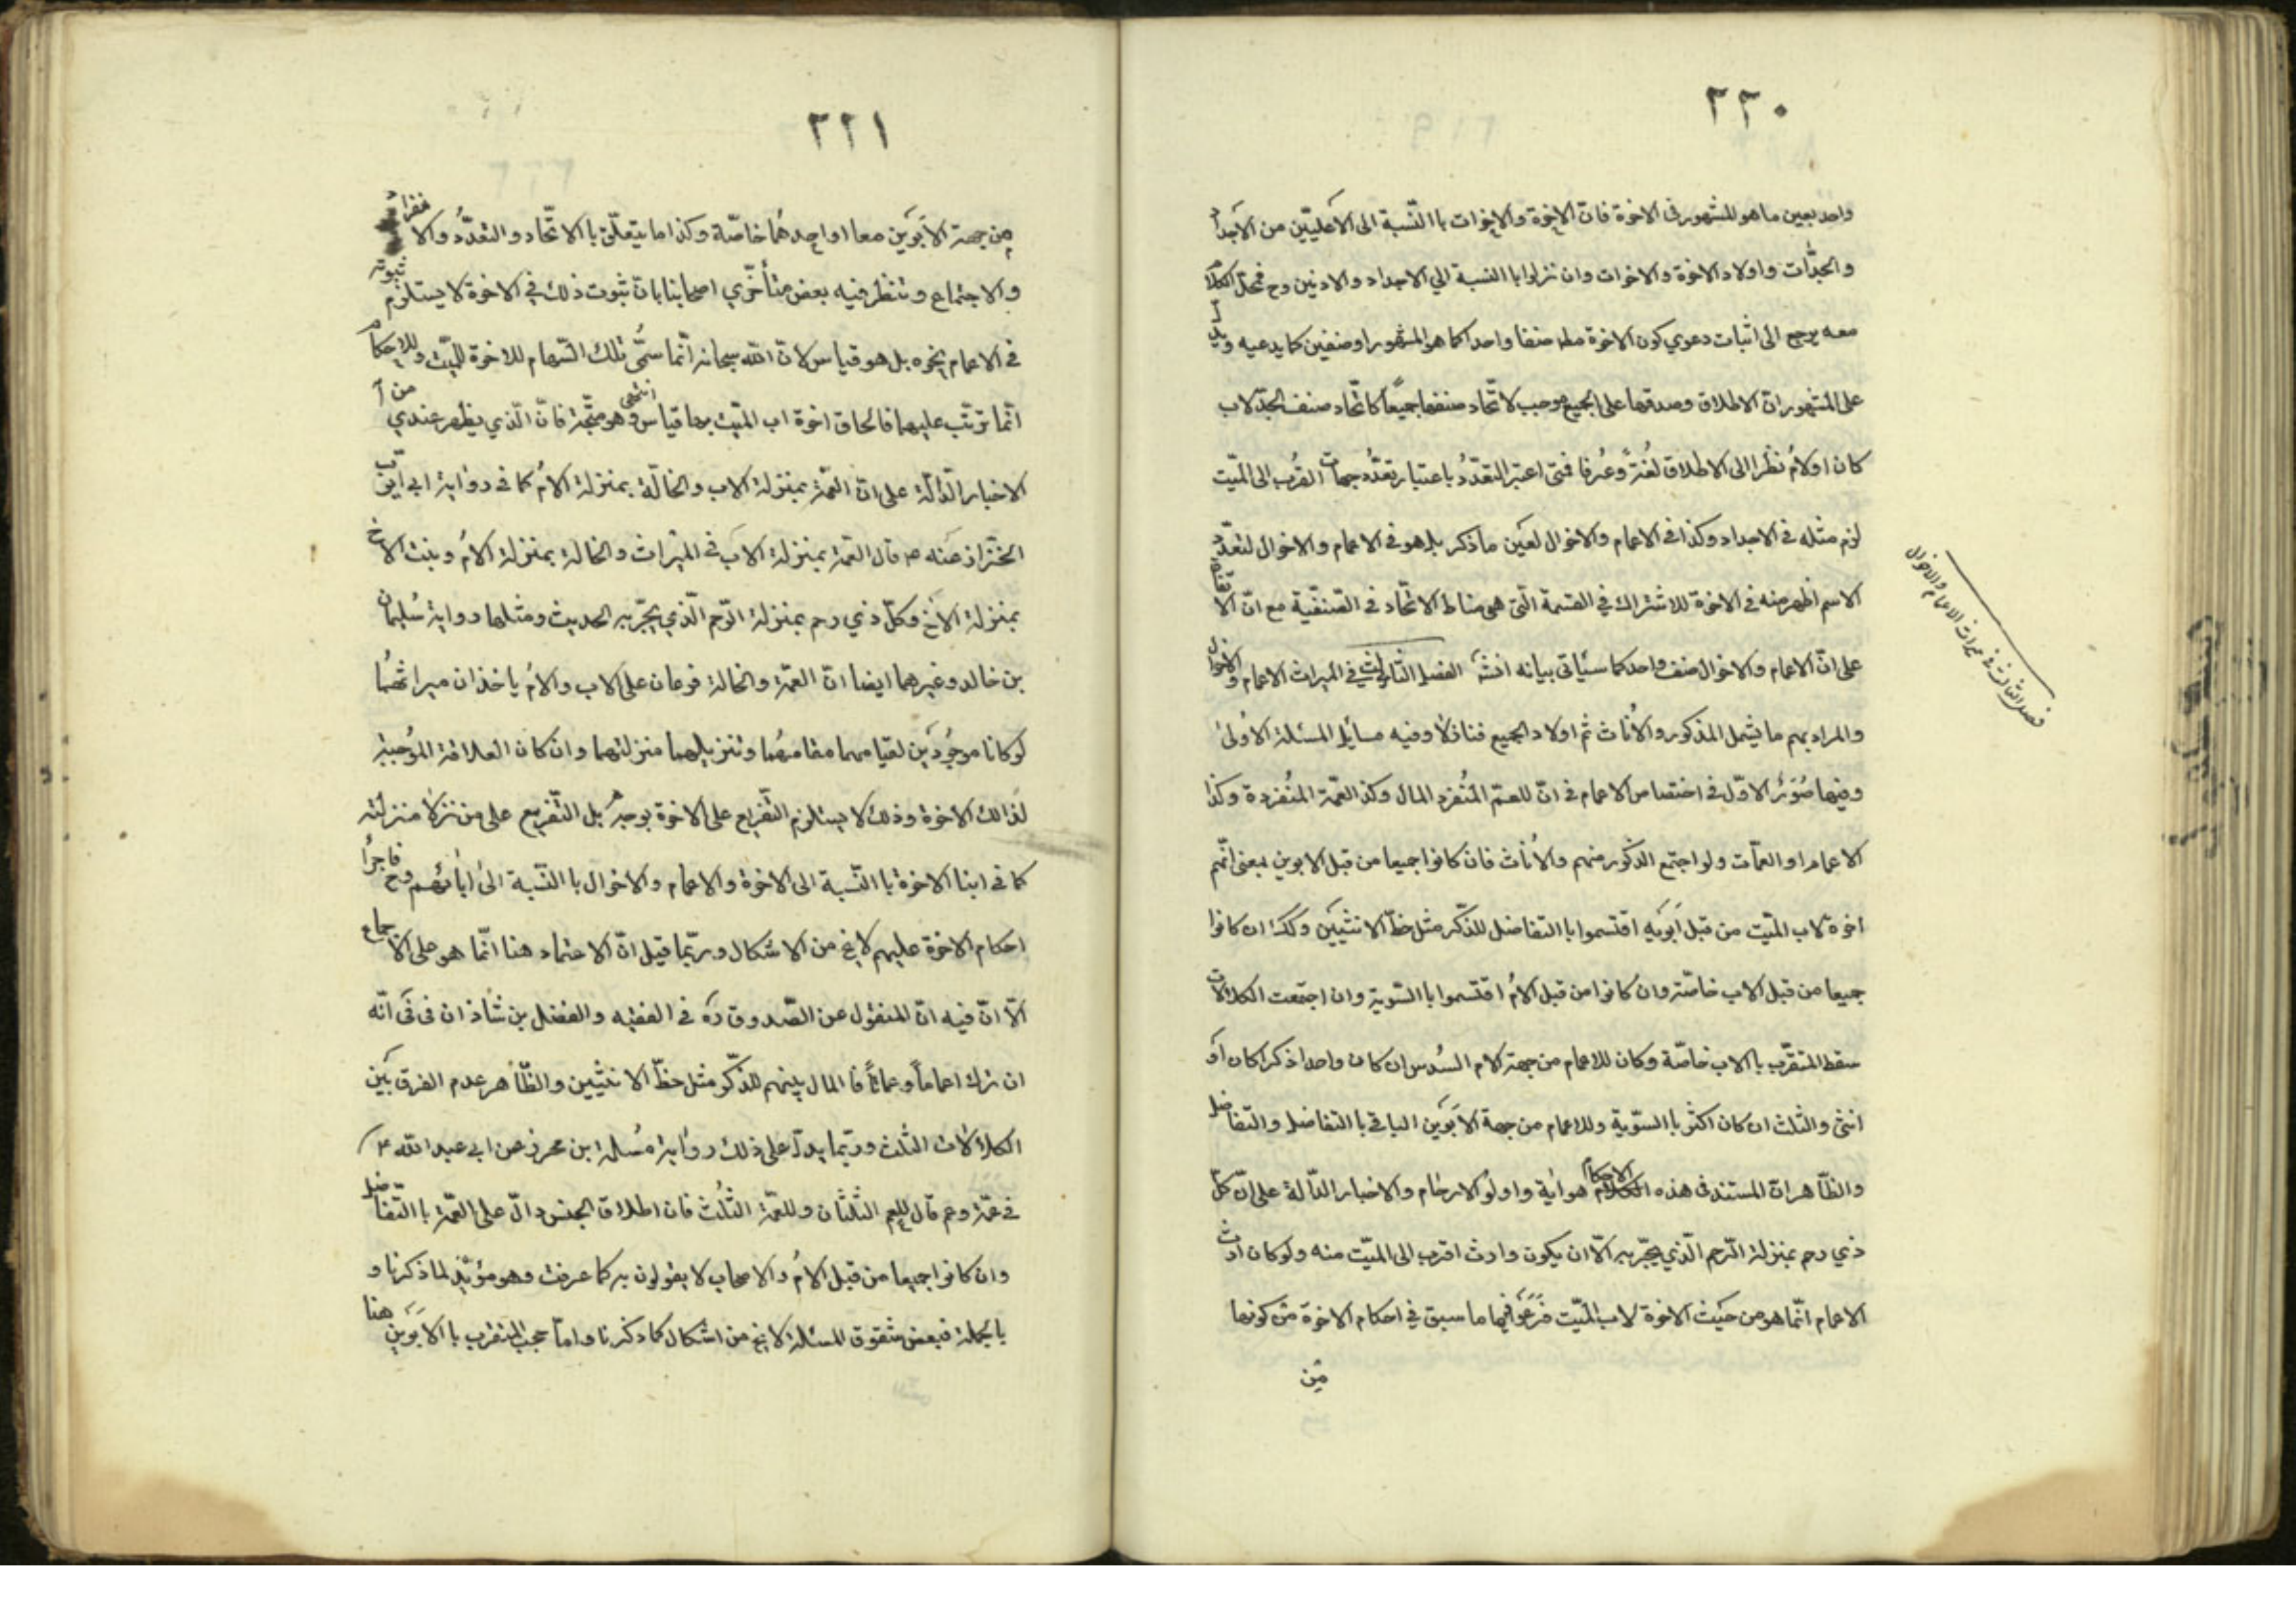 ٢٢٠
واحد بعين ما هو المشهور فى الاخوة فانّ الاخوة والاخوات باالنّسبة الى الاعليّين من الاجداد
والجدّات واولاد الاخوة والاخوات وان نزلوا باالنسبة الي الاجداد والادنين وح فمحلّ الكلام
معه يرجع الى اثبات دعوي كون الاخوة مطه صنفا واحدا كما هو المشهور او صنفين كما يدعيه ويدلّ
على المشهور انّ الاطلاق وصدقها على الجميع موجب لاتّحاد صنفها جميعًا كاتّحاد صنف الجدّ لاب
كان او لامّ نظرا الى الاطلاق لُغةً وعُرفا فمتى اعتبر التعدّدُ باعتبار تعدّد جهات القُرب الى الميّت
لزم مثله فى الاجداد وكذا فى الاعمام والاخوال لعَين ما ذكر بل هو فى الاعمام والاخوال لتعدّد
الاسم اظهر منه فى الاخوة للاشتراك في القسمة الّتى هى مناط الاتّحاد فى الصّنفيّة مع انّ الاتّفاق
على انّ الاعمام والاخوال صنف واحد كما سيأتى بيانه انشـٓ الفصل الثّالث في الميراث الاعمام والاخوال
والمراد بهم ما يشمل المذكور والاُناث ثم اولاد الجميع فنازلاً وفيه مسايل المسئلة الاُولىٰ
وفيها صُوَرٌ الاوّل فى اختصاص الاعمام فى انّ للعمّ المُنفرد المال وكذا العمّة المُنفردة وكذا
الاعمام او العمّات ولو اجتمع الذكور منهم والاُناث فان كانوا جميعا من قبل الابوين بمعنى انّهم
اخوة لاب الميّت من قبل اَبوَيه اقتسموا باالتفاضل للذّكر مثل حظّ الانثيَين وكك ان كانوا
جميعا من قبل الاب خاصّة وان كانوا من قبل الامّ اقتسموا باالسّوية وان اجتمعت الكلالات
سقط المتقرّب باالاب خاصّة وكان للاعمام من جهة الام السُدس ان كان واحدا ذكرا كان او
انثى والثلث ان كان اكثر باالسّوّية وللاعمام من جهة الابوَين الباقي باالتفاضل والتفاضل
والظّاهر انّ المستند فى هذه الاحكام هو اٰية واولوُا الارحام والاخبار الدّآلة على انّ كلّ
ذي رحم بمنزلة الرّحم الّذي يجرّ به الّا ان يكون وارث اقرب الى الميّت منه ولو كان ارث
الاعمام انّما هو من حيَث الاخوة لاب الميّت فرّعوا فيها ما سبق في احكام الاخوة من كونها
من
فصل الثّالث فى ميراث الاعمام والاخوال
٢٢١
من جهة الاَبوَين معا او احدهُما خاصّة وكذا ما يتعلّق باالاتّحاد والتعدّد والانفراد
والاجتماع وتنظر فيه بعض متأخّري اصحابنا بانّ ثبوت ذلك في الاخوة لا يستلزم ثبوته
فى الاعمام بل هو قياس لانّ اللّه سبحانه انّما سمّى تلك السّهام للاخوة للميّت والاحكام
انّما ترتّب عليهما فالحاق اخوة اب الميّت بها قياس انتهى وهو متّجه فانّ الّذي يظهر عندي من
الاخبار الدّالّة على انّ العمّة بمنزلة الاب والخالة بمنزلة الامّ كما فى رواية ابى ايّوب
الخزّاز عنه ع قال العمّة بمنزلة الاَب في الميراث والخالة بمنزلة الامّ وبنت الاخ
بمنزلة الاخ وكلّ ذي رحم بمنزلة الرّحم الّذي يجرّ به الحديث ومثلها رواية سُليمان
بن خالد وغيرهما ايضا انّ العمّة والخالة فرعان على الاب والامّ ياخذان ميراثهُما
لو كانا موجُودَين لقيامهما مقامهُما وتنزيلهما منزلتهما وان كان العلاقة المُوجبة
لذالك الاخوة وذلك لا يستلزم التّفريع على الاخوة بوجه بل التّفريع على من نزلا منزلته
كما فى ابنا الاخوة باالنّسبة الى الاخوة والاعمام والاخوال باالنّسبة الى اٰبائهم وح فاجراٰ
احكام الاخوة عليهم لا يخ من الاشكال وربّما قيل انّ الاعتماد هنا انّما هو على الاجماع
الّا انّ فيه انّ المنقول عن الصّدوق ره فى الفقيه والفضل بن شاذان فى فى انّه
ان ترك اعماماً وعماتاً فاالمال بينهم للذّكر مثل حظّ الانثيين والظّاهر عدم الفرق بَين
الكلالات الثلث وربّما يدلّ على ذلك رواية مُسلمة ابن محرز عن ابى عبد اللّه ع
فى عمّة وعم قال للعم الثلثان وللعمّة الثّلُث فان اطلاق الجنس دالّ على العمّة باالتّفاضل
وان كانوا جميعا من قبل الامّ والاصحاب لا يقولون به كما عرفت وهو مؤيّد لما ذكرنا و
باالجملة فبعض شقوق المسئلة لا يخ من اشكال كما ذكرنا واما حجب المتقرب باالابَوَين هنا